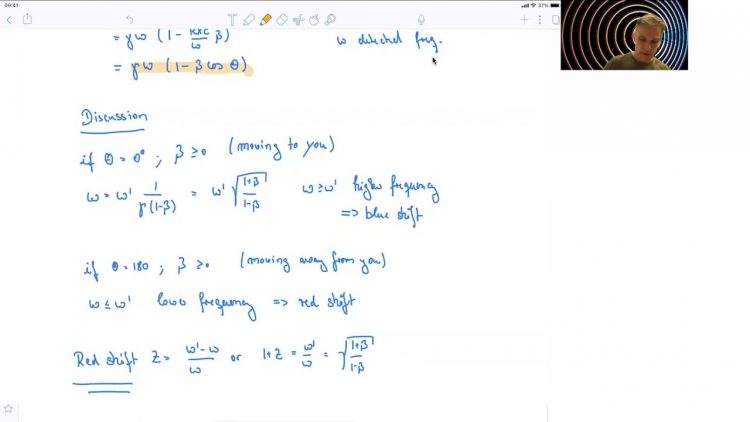 09:41
37%
= γω (1 - kxc/ω β)
ω detected freq.
= γω (1 - β cos θ)
Discussion
if θ = 0° ; β ≥ 0 (moving to you)
ω = ω' 1/γ(1-β) = ω' √(1+β/1-β) ω ≥ ω' higher frequency
=> blue shift
if θ = 180 ; β ≥ 0 (moving away from you)
ω ≤ ω' lower frequency => red shift
Red shift Z = ω'-ω/ω or 1+Z = ω'/ω = √(1+β/1-β)